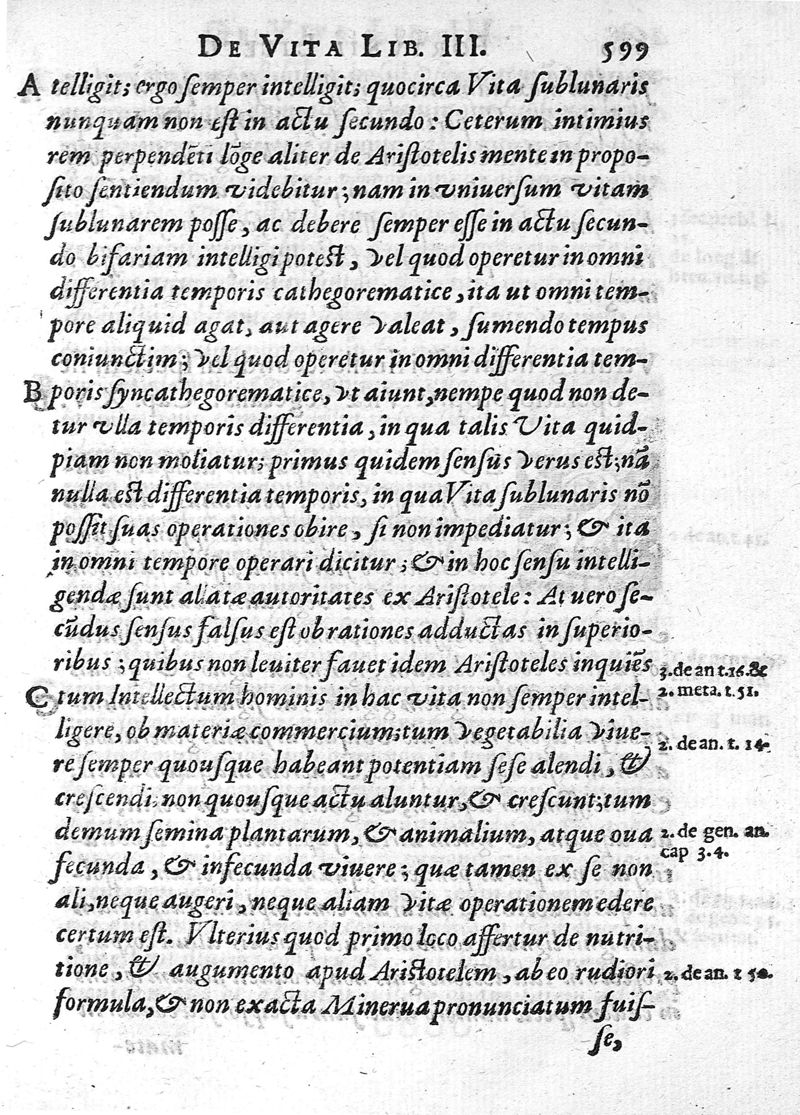 DE VITA LIB. III. 599
A telligit; ergo semper intelligit; quocirca Vita sublunaris
nunquam non est in actu secundo: Ceterum intimius
rem perpendēti lōge aliter de Aristotelis mente in propo-
sito sentiendum videbitur; nam in vniuersum vitam
sublunarem posse, ac debere semper esse in actu secun-
do bifariam intelligi potest, vel quod operetur in omni
differentia temporis cathegorematice, ita ut omni tem-
pore aliquid agat, aut agere valeat, sumendo tempus
coniunctim; vel quod operetur in omni differentia tem-
B poris syncathegorematice, vt aiunt, nempe quod non de-
tur vlla temporis differentia, in qua talis Vita quid-
piam non moliatur; primus quidem sensus verus est; nā
nulla est differentia temporis, in qua Vita sublunaris nō
possit suas operationes obire, si non impediatur; & ita
in omni tempore operari dicitur; & in hoc sensu intelli-
gendæ sunt allatæ autoritates ex Aristotele: At uero se-
cūdus sensus falsus est ob rationes adductas in superio-
ribus; quibus non leuiter fauet idem Aristoteles inquiēs 3. de an t. 16. &
C tum Intellectum hominis in hac vita non semper intel- 2. meta. t. 51.
ligere, ob materiæ commercium; tum vegetabilia viue-
re semper quousque habeant potentiam sese alendi, & 2. de an. t. 14.
crescendi, non quousque actu aluntur, & crescunt; tum
demum semina plantarum, & animalium, atque oua 2. de gen. an.
fecunda, & infecunda viuere; quæ tamen ex se non cap 3. 4.
ali, neque augeri, neque aliam vitæ operationem edere
certum est. Vlterius quod primo loco affertur de nutri-
tione, & augumento apud Aristotelem, ab eo rudiori 2. de an. t 50.
formula, & non exacta Minerua pronunciatum fuis-
se,